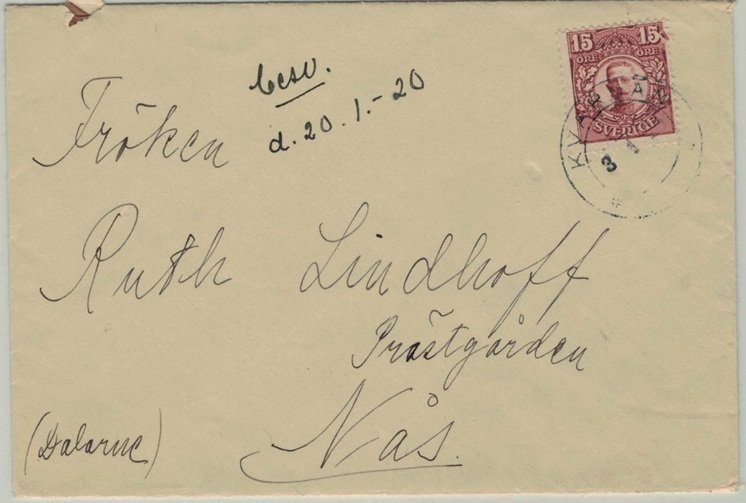 15 15
ÖRE ÖRE
SVERIGE
besv.
d. 20. 1.- 20
Fröken
Ruth Lindhoff
Prästgården
Nås.
(Dalarne)